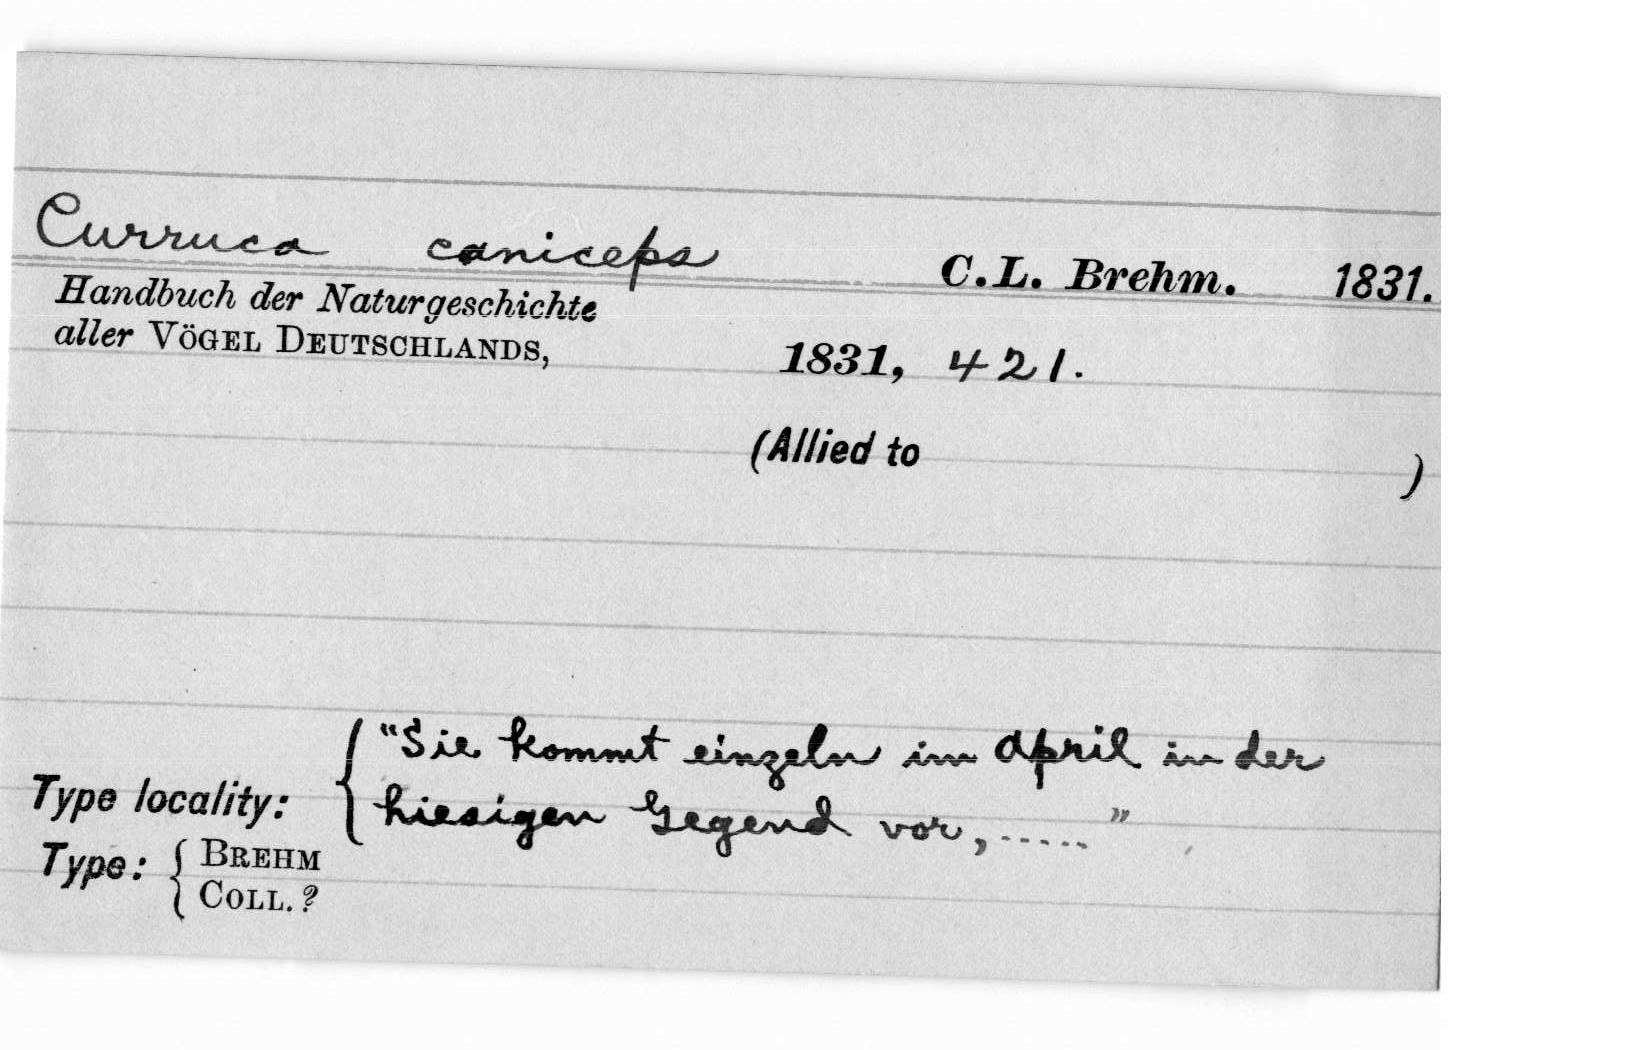 Curruca caniceps C.L. Brehm. 1831.
Handbuch der Naturgeschichte
aller VÖGEL DEUTSCHLANDS, 1831, 421.
(Allied to )
"Sie kommt einzeln im April in der
Type locality: hiesigen Gegend vor, ....."
Type: { BREHM
COLL. ?